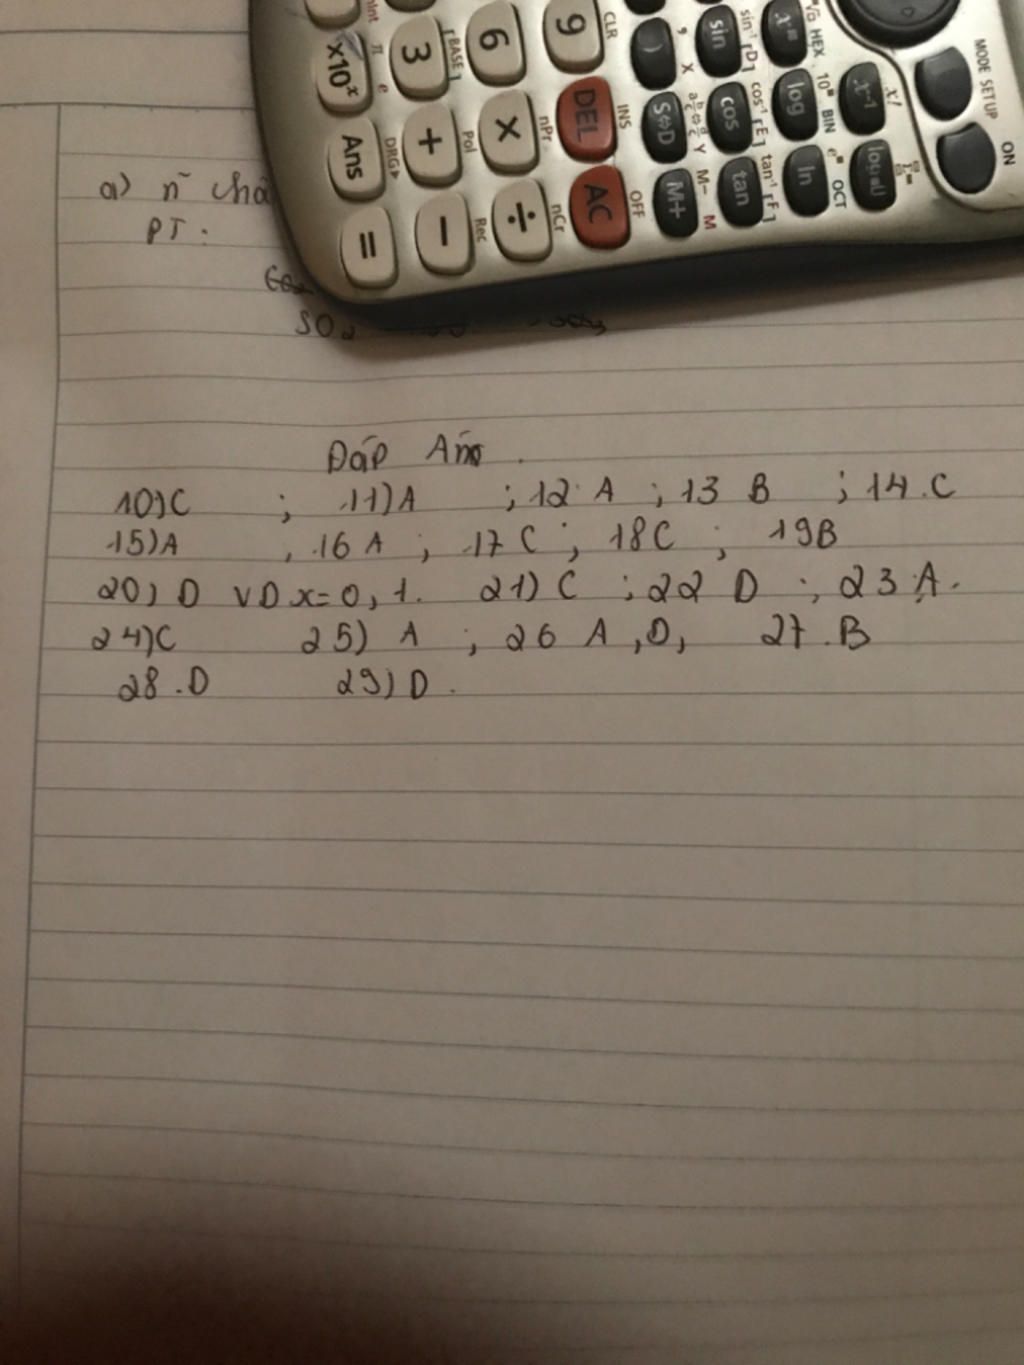 CLR
9
6
3
[BASE]
π
e
×10ˣ
)
,
X
sin
sin⁻¹ [D]
HEX
INS
DEL
nPr
×
Pol
+
DRG▸
Ans
S⇔D
Y
cos
cos⁻¹ [E]
log
10■ BIN
x⁻¹
x!
MODE SETUP
ON
OFF
AC
nCr
÷
Rec
−
=
M+
M− M
tan
tan⁻¹ [F]
ln
e■ OCT
a) n
PT.
SO2
Đáp Án
10)C ; 11)A ; 12. A ; 13 B ; 14.C
15)A , 16 A ; 17 C ; 18C ; 19B
20) D VD x=0,1. 21) C ; 22 D ; 23 A.
24)C 25) A ; 26 A ,D, 27.B
28.D 29) D.